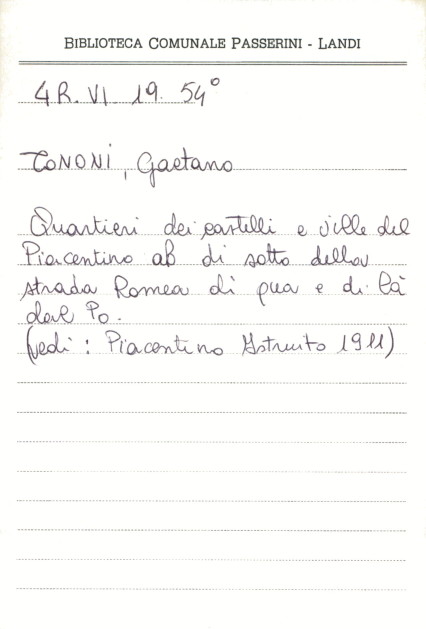 BIBLIOTECA COMUNALE PASSERINI - LANDI
4R. VI. 19. 54°
TONONI, Gaetano
Quartieri dei castelli e ville del
Piacentino al di sotto della
strada Romea di qua e di là
del Po.
(vedi: Piacentino Istruito 1911)